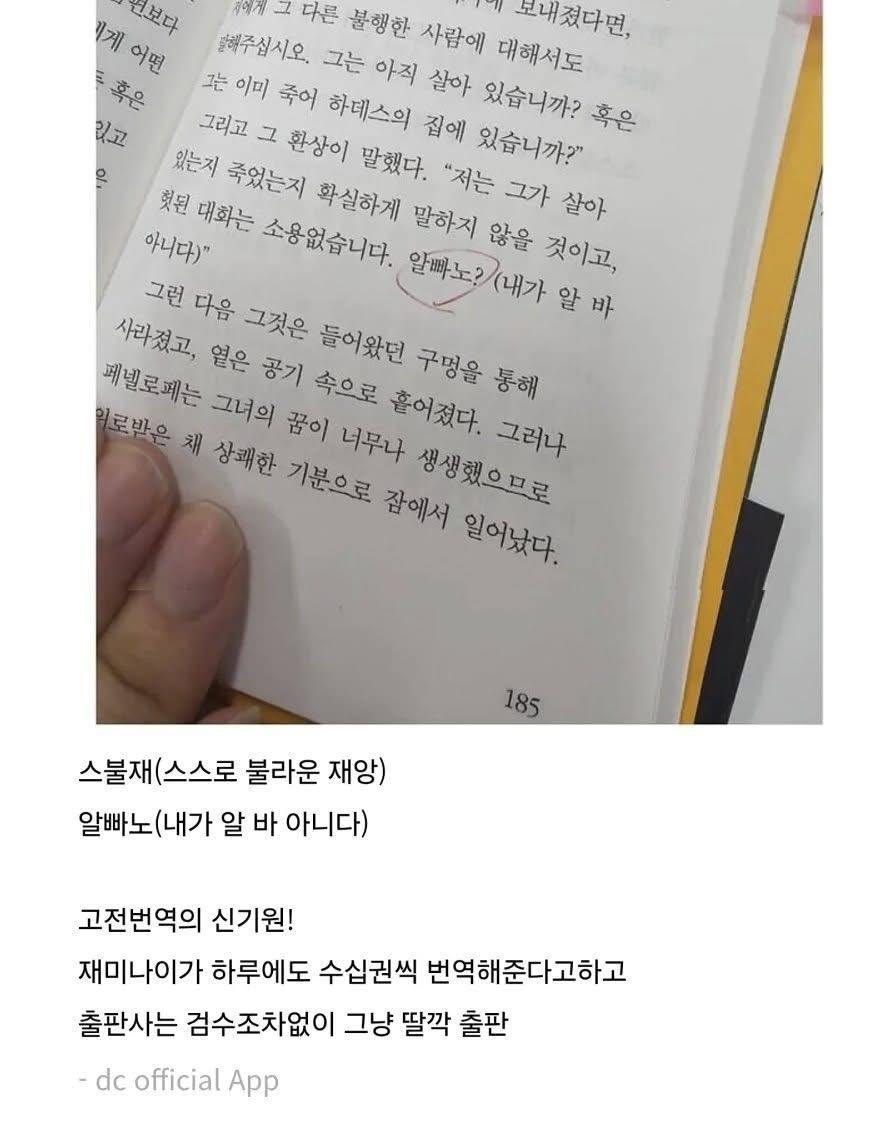 편보다
에게 어떤
혹은
있고
은
보내졌다면,
저에게 그 다른 불행한 사람에 대해서도
말해주십시오. 그는 아직 살아 있습니까? 혹은
그는 이미 죽어 하데스의 집에 있습니까?”
그리고 그 환상이 말했다. “저는 그가 살아
있는지 죽었는지 확실하게 말하지 않을 것이고,
헛된 대화는 소용없습니다. 알빠노? (내가 알 바
아니다)”
그런 다음 그것은 들어왔던 구멍을 통해
사라졌고, 옅은 공기 속으로 흩어졌다. 그러나
페넬로페는 그녀의 꿈이 너무나 생생했으므로
위로받은 채 상쾌한 기분으로 잠에서 일어났다.
185
스불재(스스로 불라운 재앙)
알빠노(내가 알 바 아니다)
고전번역의 신기원!
재미나이가 하루에도 수십권씩 번역해준다고하고
출판사는 검수조차없이 그냥 딸깍 출판
- dc official App